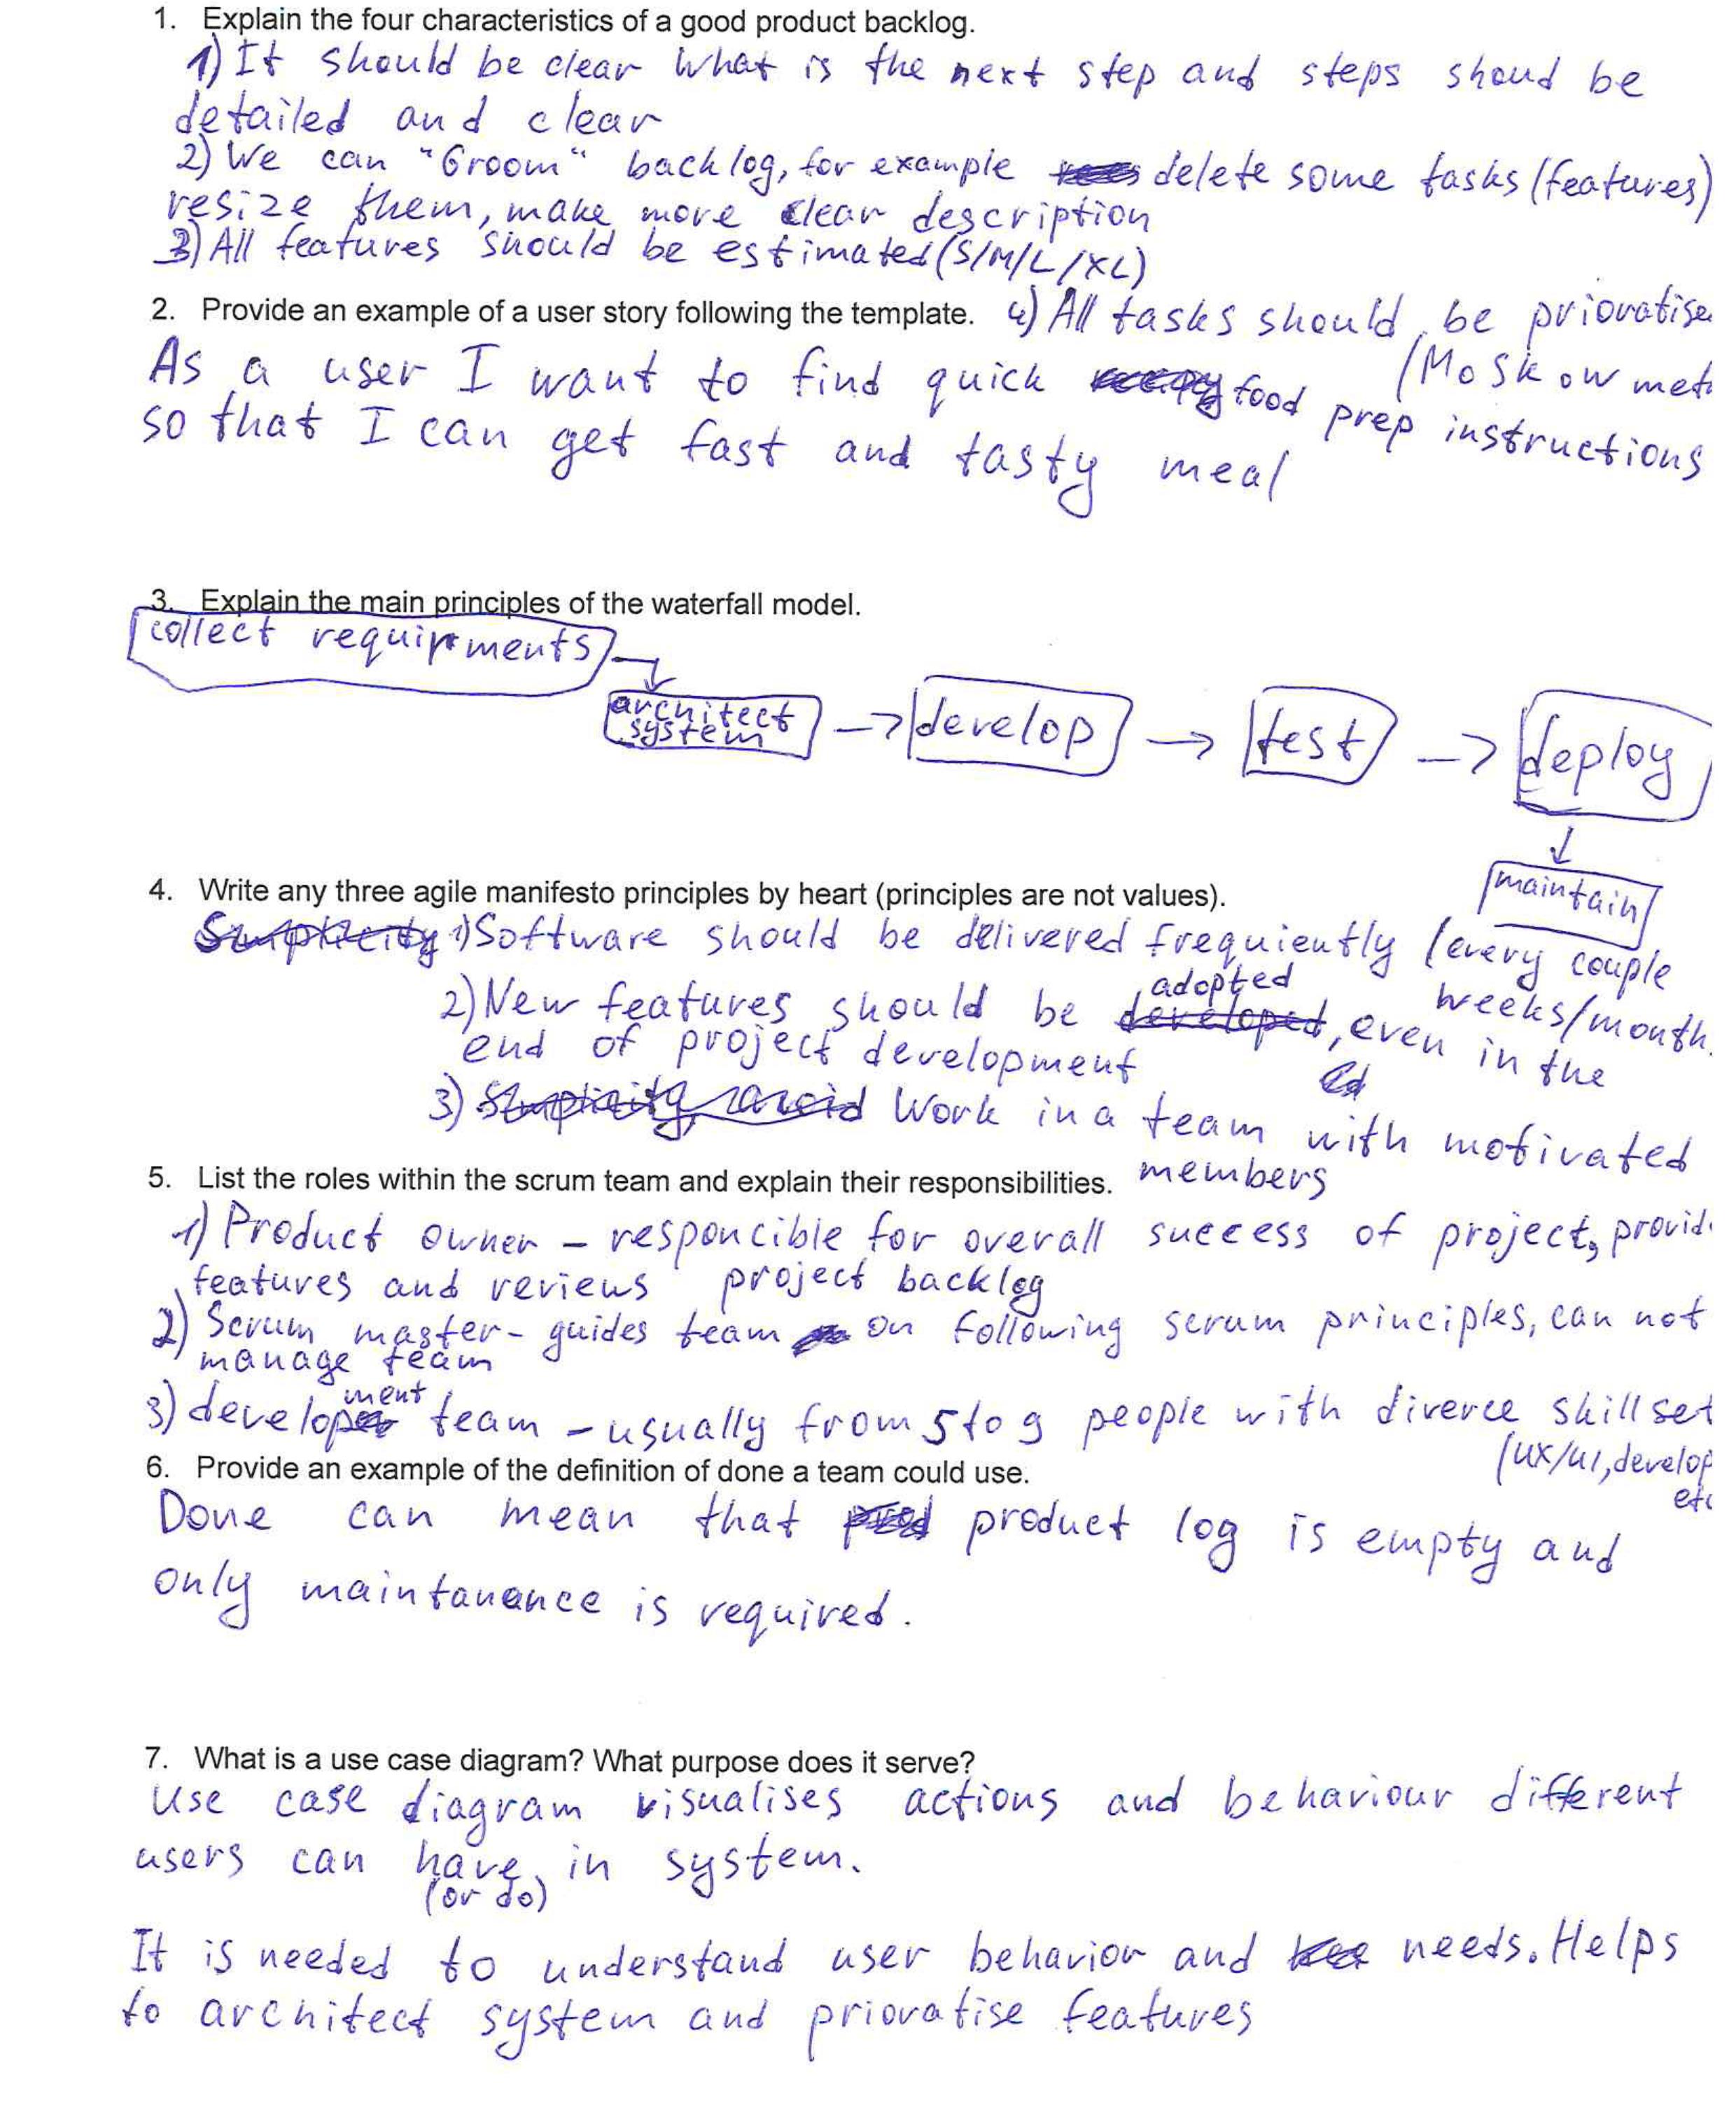 1. Explain the four characteristics of a good product backlog.
1) It should be clear what is the next step and steps shoud be
detailed and clear
2) We can "Groom" backlog, for example delete some tasks (features)
resize them, make more clear description
3) All features should be estimated (S/M/L/XL)
2. Provide an example of a user story following the template.
4) All tasks should be priovatise
(MoSkow met
As a user I want to find quick food prep instructions
so that I can get fast and tasty meal
3. Explain the main principles of the waterfall model.
collect requirments
architect
system
-> develop -> test -> deploy
maintain
4. Write any three agile manifesto principles by heart (principles are not values).
Simplicity 1) Software should be delivered frequiently (every couple
weeks/month
2) New features should be developed adopted, even in the
end of project development
3) Simplicity, avoid Work in a team with motivated
members
5. List the roles within the scrum team and explain their responsibilities.
1) Product owner - responcible for overall success of project, provid
features and reviews project backlog
2) Scrum master - guides team on following scrum principles, can not
manage team
3) development team - usually from 5 to 9 people with diverce skillset
(UX/UI, develop
etc
6. Provide an example of the definition of done a team could use.
Done can mean that product log is empty and
only maintanance is required.
7. What is a use case diagram? What purpose does it serve?
Use case diagram visualises actions and behaviour different
users can have in system.
(or do)
It is needed to understand user behavior and needs. Helps
to architect system and priovatise features